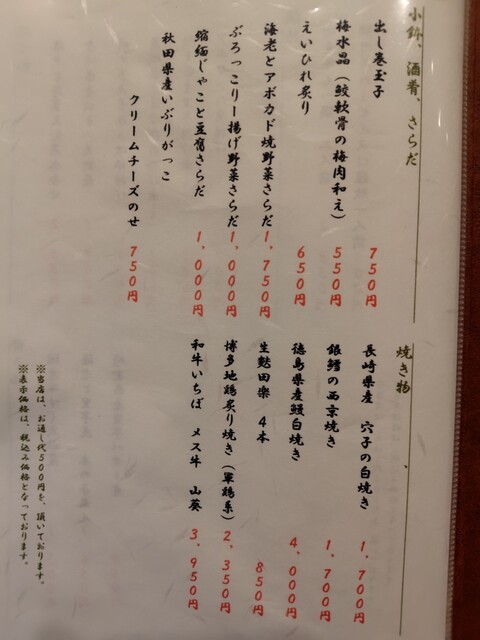 小鉢、酒肴、さらだ
出し巻玉子 750円
梅水晶(鮫軟骨の梅肉和え) 550円
えいひれ炙り 650円
海老とアボカド焼野菜さらだ 1,750円
ぶろっこりー揚げ野菜さらだ 1,000円
縮緬じゃこと豆腐さらだ 1,000円
秋田県産いぶりがっこ
クリームチーズのせ 750円
焼き物
長崎県産 穴子の白焼き 1,700円
銀鱈の西京焼き 1,700円
徳島県産鰻白焼き 4,000円
生麩田楽 4本 850円
博多地鶏炙り焼き(軍鶏系) 2,350円
和牛いちぼ メス牛 山葵 3,950円
※当店は、お通し代500円を、頂いております。
※表示価格は、税込み価格となっております。